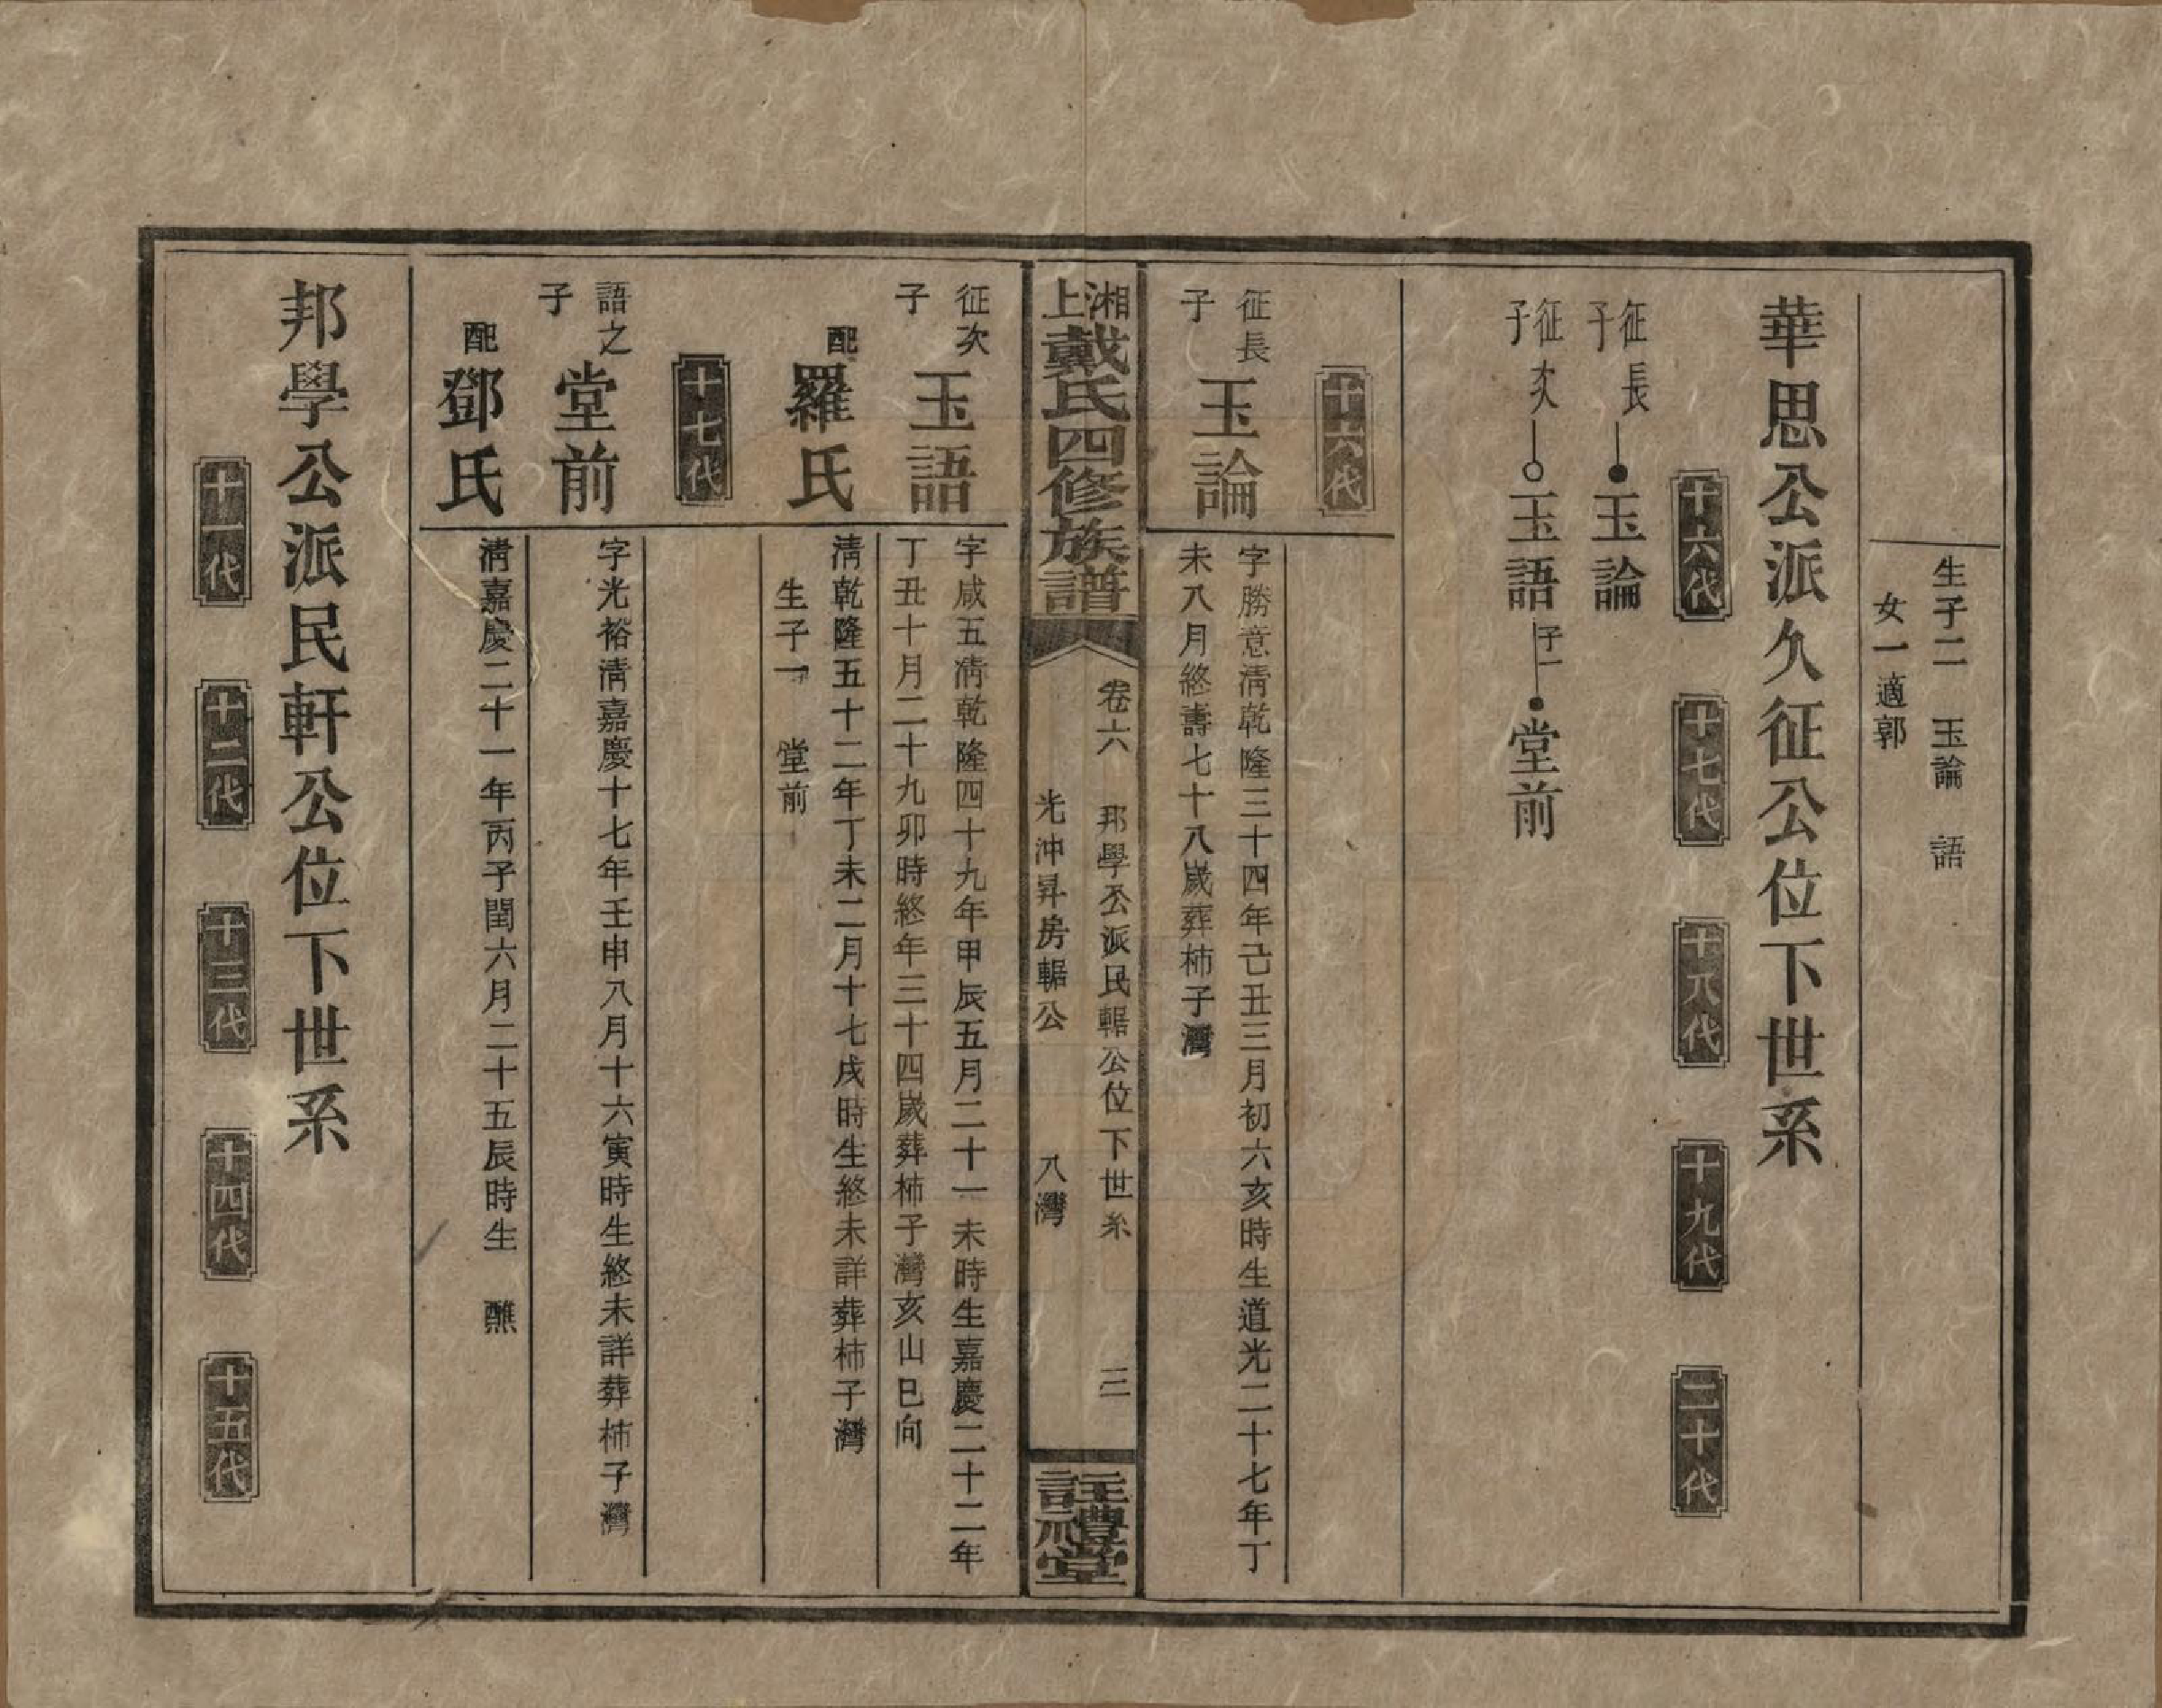 生子二　玉論　語
女一適郭
華思公派久征公位下世系
十六代　十七代　十八代　十九代　二十代
征長子　玉論
征次子　玉語　子一　堂前
十六代
征長子　玉論
字勝意清乾隆三十四年己丑三月初六亥時生道光二十七年丁
未八月終壽七十八歲葬柿子灣
湘上戴氏四修族譜
卷六　邦學公派民輥公位下世系　三
光沖昇房輥公　八灣
註禮堂
征次子　玉語
字咸五清乾隆四十九年甲辰五月二十一未時生嘉慶二十二年
丁丑十月二十九卯時終年三十四歲葬柿子灣亥山巳向
配　羅氏
清乾隆五十二年丁未二月十七戌時生終未詳葬柿子灣
生子一　堂前
十七代
語之子　堂前
字光裕清嘉慶十七年壬申八月十六寅時生終未詳葬柿子灣
配　鄧氏
清嘉慶二十一年丙子閏六月二十五辰時生　醮
邦學公派民軒公位下世系
十一代　十二代　十三代　十四代　十五代